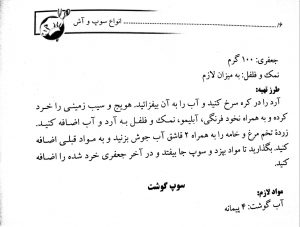 ۱۶
انواع سوپ و آش
جعفری: ۱۰۰ گرم
نمک و فلفل: به میزان لازم
طرز تهیه:
آرد را در کره سرخ کنید و آب را به آن بیفزائید. هویج و سیب زمینی را خرد
کرده و به همراه نخود فرنگی، آبلیمو، نمک و فلفل به آرد و آب اضافه کنید.
زرده تخم مرغ و خامه را به همراه ۲ قاشق آب جوش بزنید و به مواد قبلی اضافه
کنید. بگذارید تا مواد بپزد و سوپ جا بیفتد و در آخر جعفری خرد شده را اضافه
کنید.
سوپ گوشت
مواد لازم:
آب گوشت: ۴ پیمانه